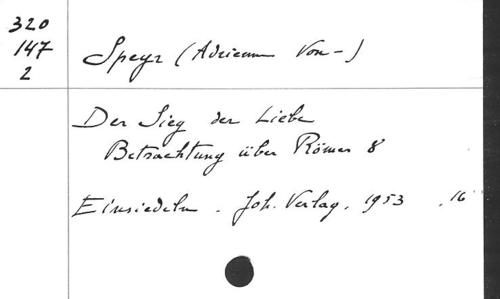 320
147
2
Speyr (Adrienne von -)
Der Sieg der Liebe
Betrachtung über Römer 8
Einsiedeln. Joh. Verlag. 1953 , 16